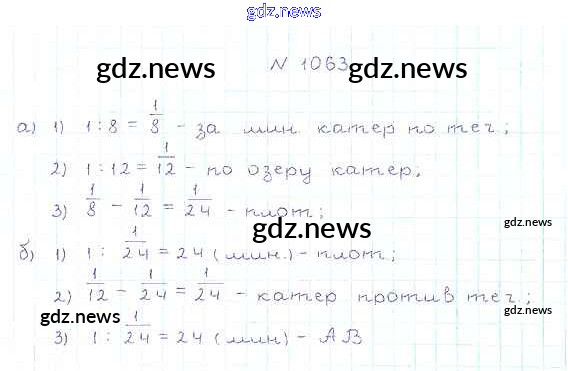 gdz.news
N 1063
gdz.news gdz.news
а) 1) 1:8 = 1/8 - за мин. катер по теч;
2) 1:12 = 1/12 - по озеру катер;
3) 1/8 - 1/12 = 1/24 - плот;
gdz.news gdz.news
б) 1) 1 : 1/24 = 24 (мин.) - плот;
2) 1/12 - 1/24 = 1/24 - катер против теч.;
gdz.news gdz.news
3) 1 : 1/24 = 24 (мин) - АВ